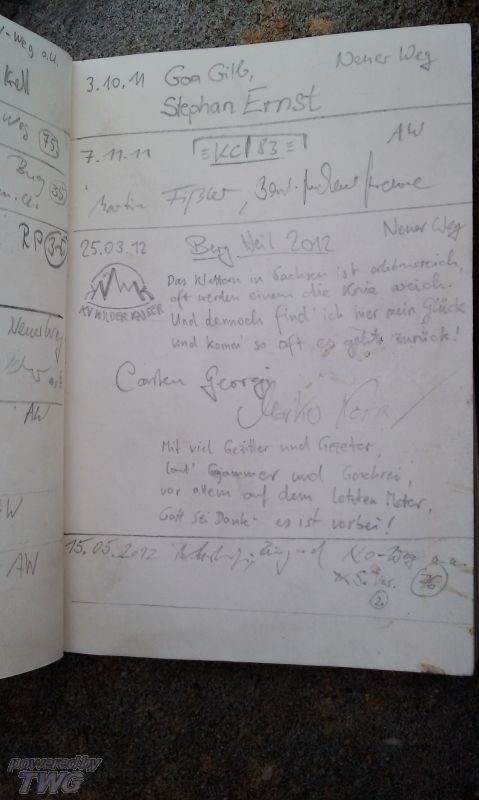 -Weg o.U.
Weg 753
Burg 35
RP
Neuer Weg
AW
AW
AW
3.10.11 Goa Gilb, Neuer Weg
Stephan Ernst
7.11.11 KC/83 AW
Martin
25.03.12 Berg Heil 2012 Neuer Weg
KV WILDER KAISER
Das Klettern in Sachsen ist arbeitsreich,
oft werden einem die Knie weich.
Und dennoch find' ich hier mein Glück
und komm' so oft es geht zurück!
Carsten Georgi
Marko
Mit viel Gezitter und Gezeter,
laut' Gejammer und Geschrei,
vor allem auf dem letzten Meter,
Gott sei Dank - es ist vorbei!
15.05.2012 NO-Weg o.U.
2.
powered by
TWG